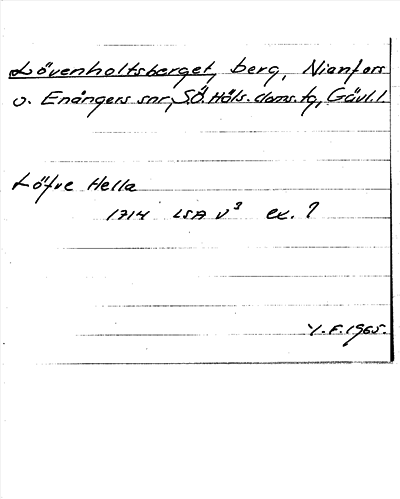 Lövenholtsberget, berg, Nianfors
o. Enångers snr, SÖ. Häls. doms. tg, Gävl. l.
Löfve Hella
1714 LSA V³ ex. ?
Y. F. 1965.